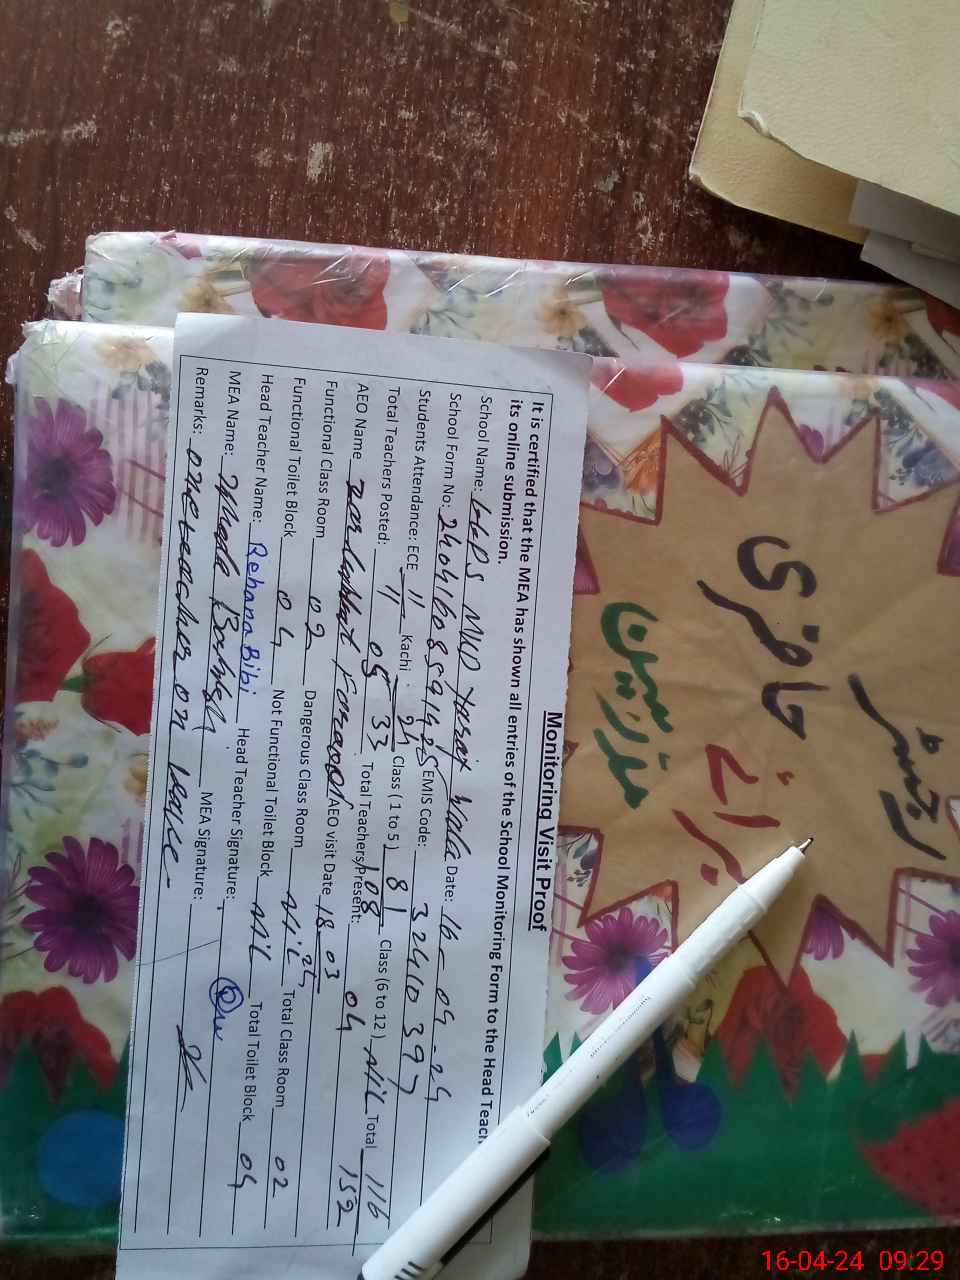 Monitoring Visit Proof
It is certified that the MEA has shown all entries of the School Monitoring Form to the Head Teach
its online submission.
School Name: Date: 16-04-24
School Form No: EMIS Code: 32410397
Students Attendance: ECE 11/11 Kachi 24/33 Class (1 to 5) 81/108 Class (6 to 12) NIL Total 116/152
Total Teachers Posted: 05 Total Teachers Present: 04
AEO Name AEO visit Date 18-03-24
Functional Class Room 02 Dangerous Class Room NIL Total Class Room 02
Functional Toilet Block 04 Not Functional Toilet Block NIL Total Toilet Block 04
Head Teacher Name: Rehana Bibi Head Teacher Signature:
MEA Name: MEA Signature:
Remarks: one teacher on leave
رجسٹر
حاضری
برائے
مدرسین
16-04-24 09:29